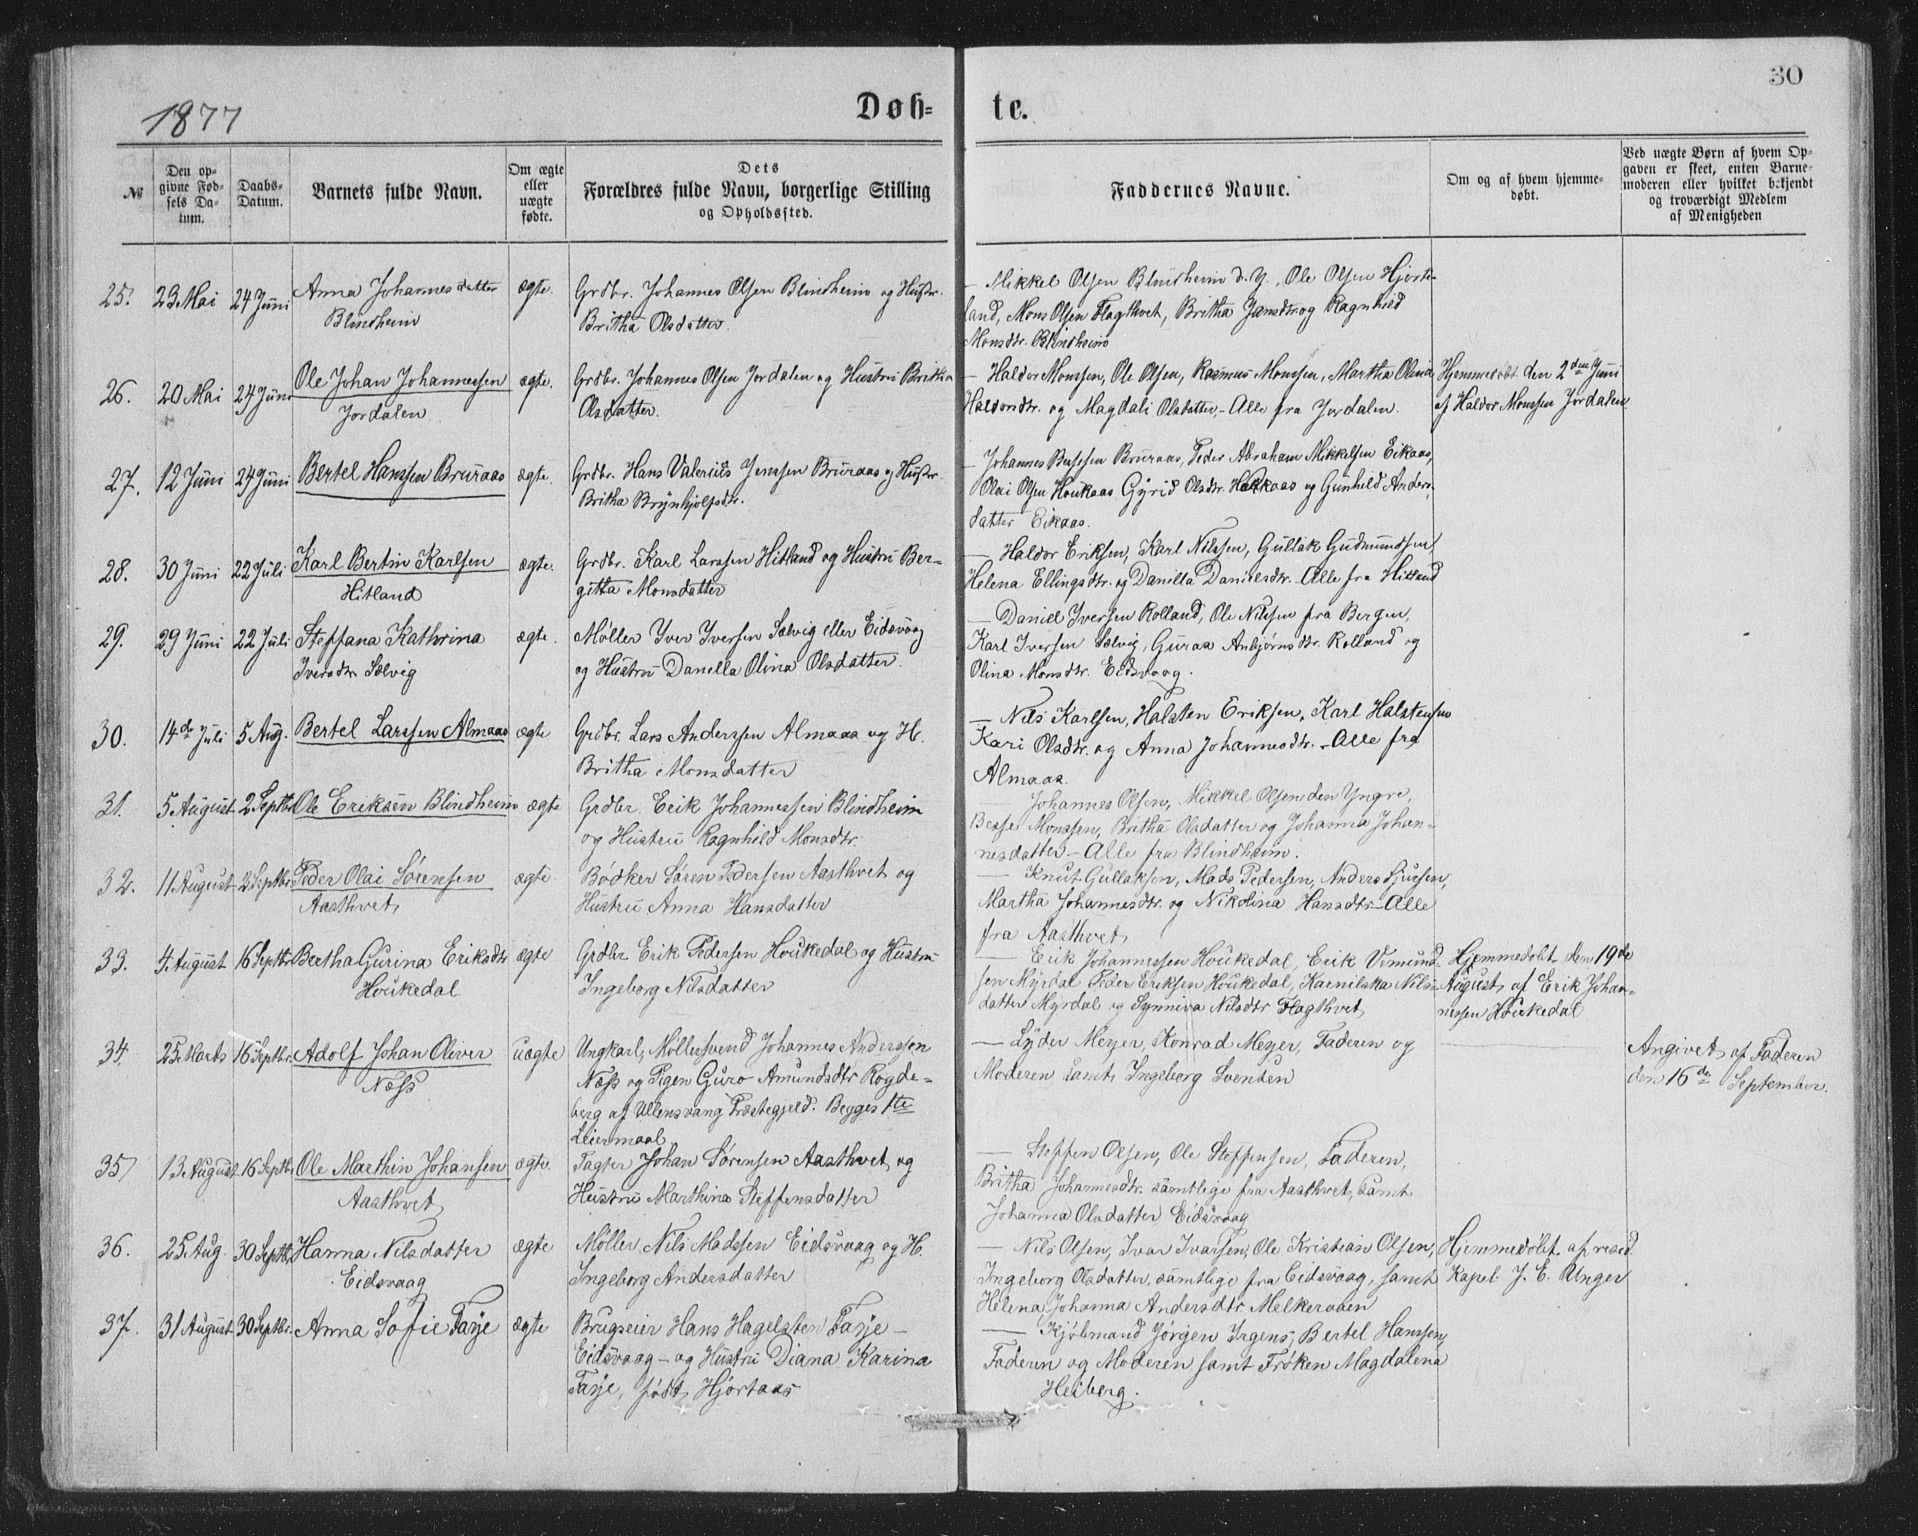 30
1877
Døb-
te.
№
Den op-
givne Fød-
sels Da-
tum.
Daabs-
Datum.
Barnets fulde Navn.
Om ægte
eller
uægte
fødte.
Dets
Forældres fulde Navn, borgerlige Stilling
og Opholdssted.
Faddernes Navne.
Om og af hvem hjemme-
døbt.
Ved uægte Børn af hvem Op-
gaven er skeet, enten Barne-
moderen eller hvilket bekjendt
og troværdigt Medlem
af Menigheden
25. 23. Mai 24 Juni Anna Johannesdatter
Blindheim
ægte. Grdbr. Johannes Olsen Blindheim og Hustr.
Britha Olsdatter.
— Mikkel Olsen Blindheim d. Y., Ole Olsen Hjorte-
land, Mons Olsen Flagthvet, Britha Jansdtr. og Ragnhild
Monsdtr. Blindheim
26. 20 Mai 24 Juni Ole Johan Johannessen
Jordalen
ægte. Grdbr. Johannes Olsen Jordalen og Hustru Britha
Olsdatter.
— Haldor Monssen, Ole Olsen, Rasmus Monssen, Martha Olina
Haldorsdtr. og Magdali Olsdatter, - Alle fra Jordalen.
Hjemmedøbt den 2den Juni
af Haldor Monssen Jordalen.
27. 12 Juni 24 Juni Bertel Hanssen Bruraas
ægte. Grdbr. Hans Valerius Jenssen Bruraas og Hustr.
Britha Brynhjolfsdtr.
— Johannes Bessesen Bruraas, Peder Abraham Mikkelsen Eikaas,
Olai Olsen Houkaas Gyrid Olsdtr. Houkaas og Gunhild Anders-
datter Eikaas.
28. 30 Juni 22 Juli Karl Bertin Karlsen
Hitland
ægte. Grdbr. Karl Larssen Hitland og Hustru Ber-
gitta Monsdatter
— Haldor Eriksen, Karl Nilssen, Gullak Gudmundsen,
Helena Ellingsdtr. og Danilla Danielsdtr. Alle fra Hitland
29. 29 Juni 22 Juli Steffana Kathrina
Iversdtr Sælvig
ægte. Møller Iver Iversen Sælvig eller Eidsvaag
og Hustru Danella Olina Olsdatter.
— Daniel Iversen Rolland, Ole Nilssen fra Bergen,
Karl Iversen Sælvig, Guraa Anbjørnsdtr. Rolland og
Olina Monsdtr. Eidsvaag.
30. 14de Juli 5 Aug. Bertel Larssen Almaas
ægte Grdbr. Lars Anderssen Almaas og H.
Britha Monsdatter
— Nils Karlsen, Halsten Eriksen, Karl Halstensen
Kari Olsdtr. og Anna Johannesdtr. - Alle fra
Almaas.
31. 5. August 2 Septbr Ole Eriksen Blindheim
ægte Grdbr. Erik Johannessen Blindheim
og Hustru Ragnhild Monsdtr.
— Johannes Olsen, Mikkel Olsen den Yngre,
Besse Monssen, Britha Olsdatter og Johanna Johan-
nesdatter - Alle fra Blindheim.
32. 11 August 2 Septbr. Peder Olai Sørensen
Aasthvet
ægte Bødker Søren Pedersen Aasthvet og
Hustru Anna Hansdatter
— Knut Gullaksen, Mads Pedersen, Anders Sjursen,
Martha Johannesdtr. og Nikolina Hansdtr - Alle
fra Aasthvet
33. 4. August 16 Septbr Bertha Gurina Eriksdtr
Houkedal
ægte Grdbr Erik Pedersen Houkedal og Hustru
Ingeborg Nilsdatter
— Erik Johannessen Houkedal, Erik Vemund-
sen Myrdal Peder Eriksen, Houkedal, Karnilska Nils-
datter Myrdal og Synniva Nilsdtr Flagthvet
Hjemmedøbt den 19de
August af Erik Johan-
nessen Houkedal
34. 25. Marts 16 Septbr. Adolf Johan Oliver
Næss
uægte Ungkarl, Møllersvend Johannes Anderssen
Næss og Pigen Guro Amundsdtr Rogde-
berg af Ullensvang Præstegjeld. Begges 1te
Leiermaal
— Lyder Meyer, Konrad Meyer, Faderen og
Moderen samt Ingeborg Svensen
Angivet af Faderen
den 16de September.
35. 13. August 16 Septbr. Ole Marthin Johansen
Aasthvet
ægte. Fagter Johan Sørensen Aasthvet og
Hustru Marthina Steffensdatter
— Steffen Olsen, Ole Steffensen, Faderen,
Britha Johannesdtr. samtlige fra Aasthvet, samt
Johanna Olsdatter Eidsvaag
36. 25. Aug. 30 Septbr. Hanna Nilsdatter
Eidsvaag
ægte Møller Nils Madssen Eidsvaag og H.
Ingeborg Andersdatter
— Nils Olsen, Ivar Ivarsen, Ole Kristian Olsen,
Ingeborg Olsdatter, samtlige fra Eidsvaag, samt
Helena Johanna Andersdtr Melkeraaen
Hjemmedøbt af resid.
Kapel. J. E. Unger
37. 31 August 30 Septbr. Anna Sofie Faye
ægte Brugseier Hans Hagelsten Faye -
Eidsvaag - og Hustru Diana Karina
Faye, født Hjortaas
— Kjøbmand Jørgen Irgens, Bertel Hanssen,
Faderen og Moderen samt Frøken Magdalena
Heiberg.